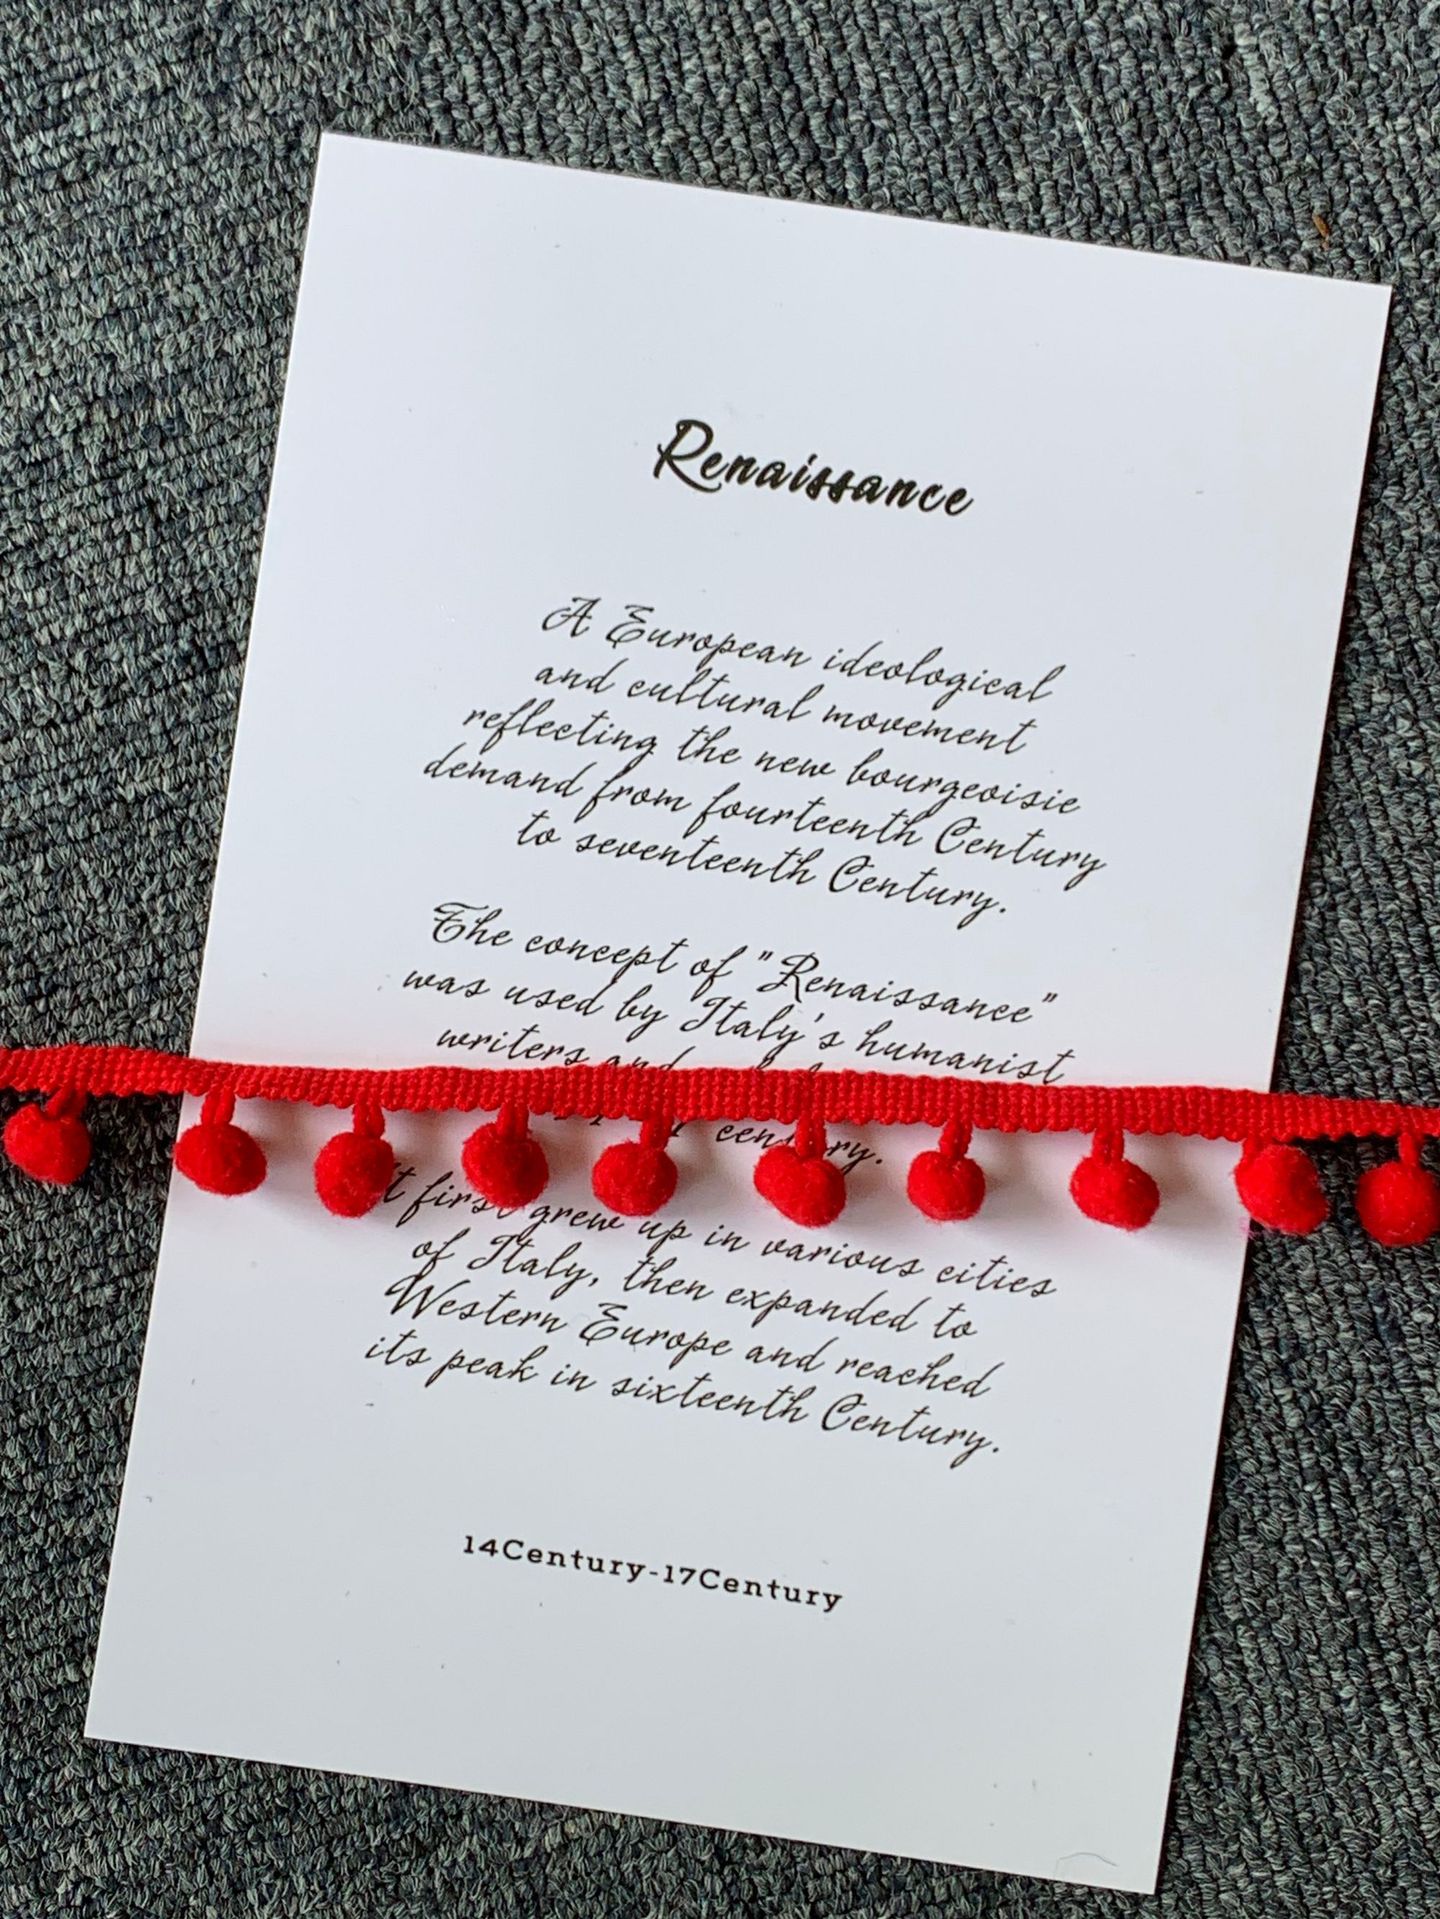 Renaissance
A European ideological
and cultural movement
reflecting the new bourgeoisie
demand from fourteenth Century
to seventeenth Century.
The concept of "Renaissance"
was used by Italy's humanist
writers and
century.
It first grew up in various cities
of Italy, then expanded to
Western Europe and reached
its peak in sixteenth Century.
14Century-17Century